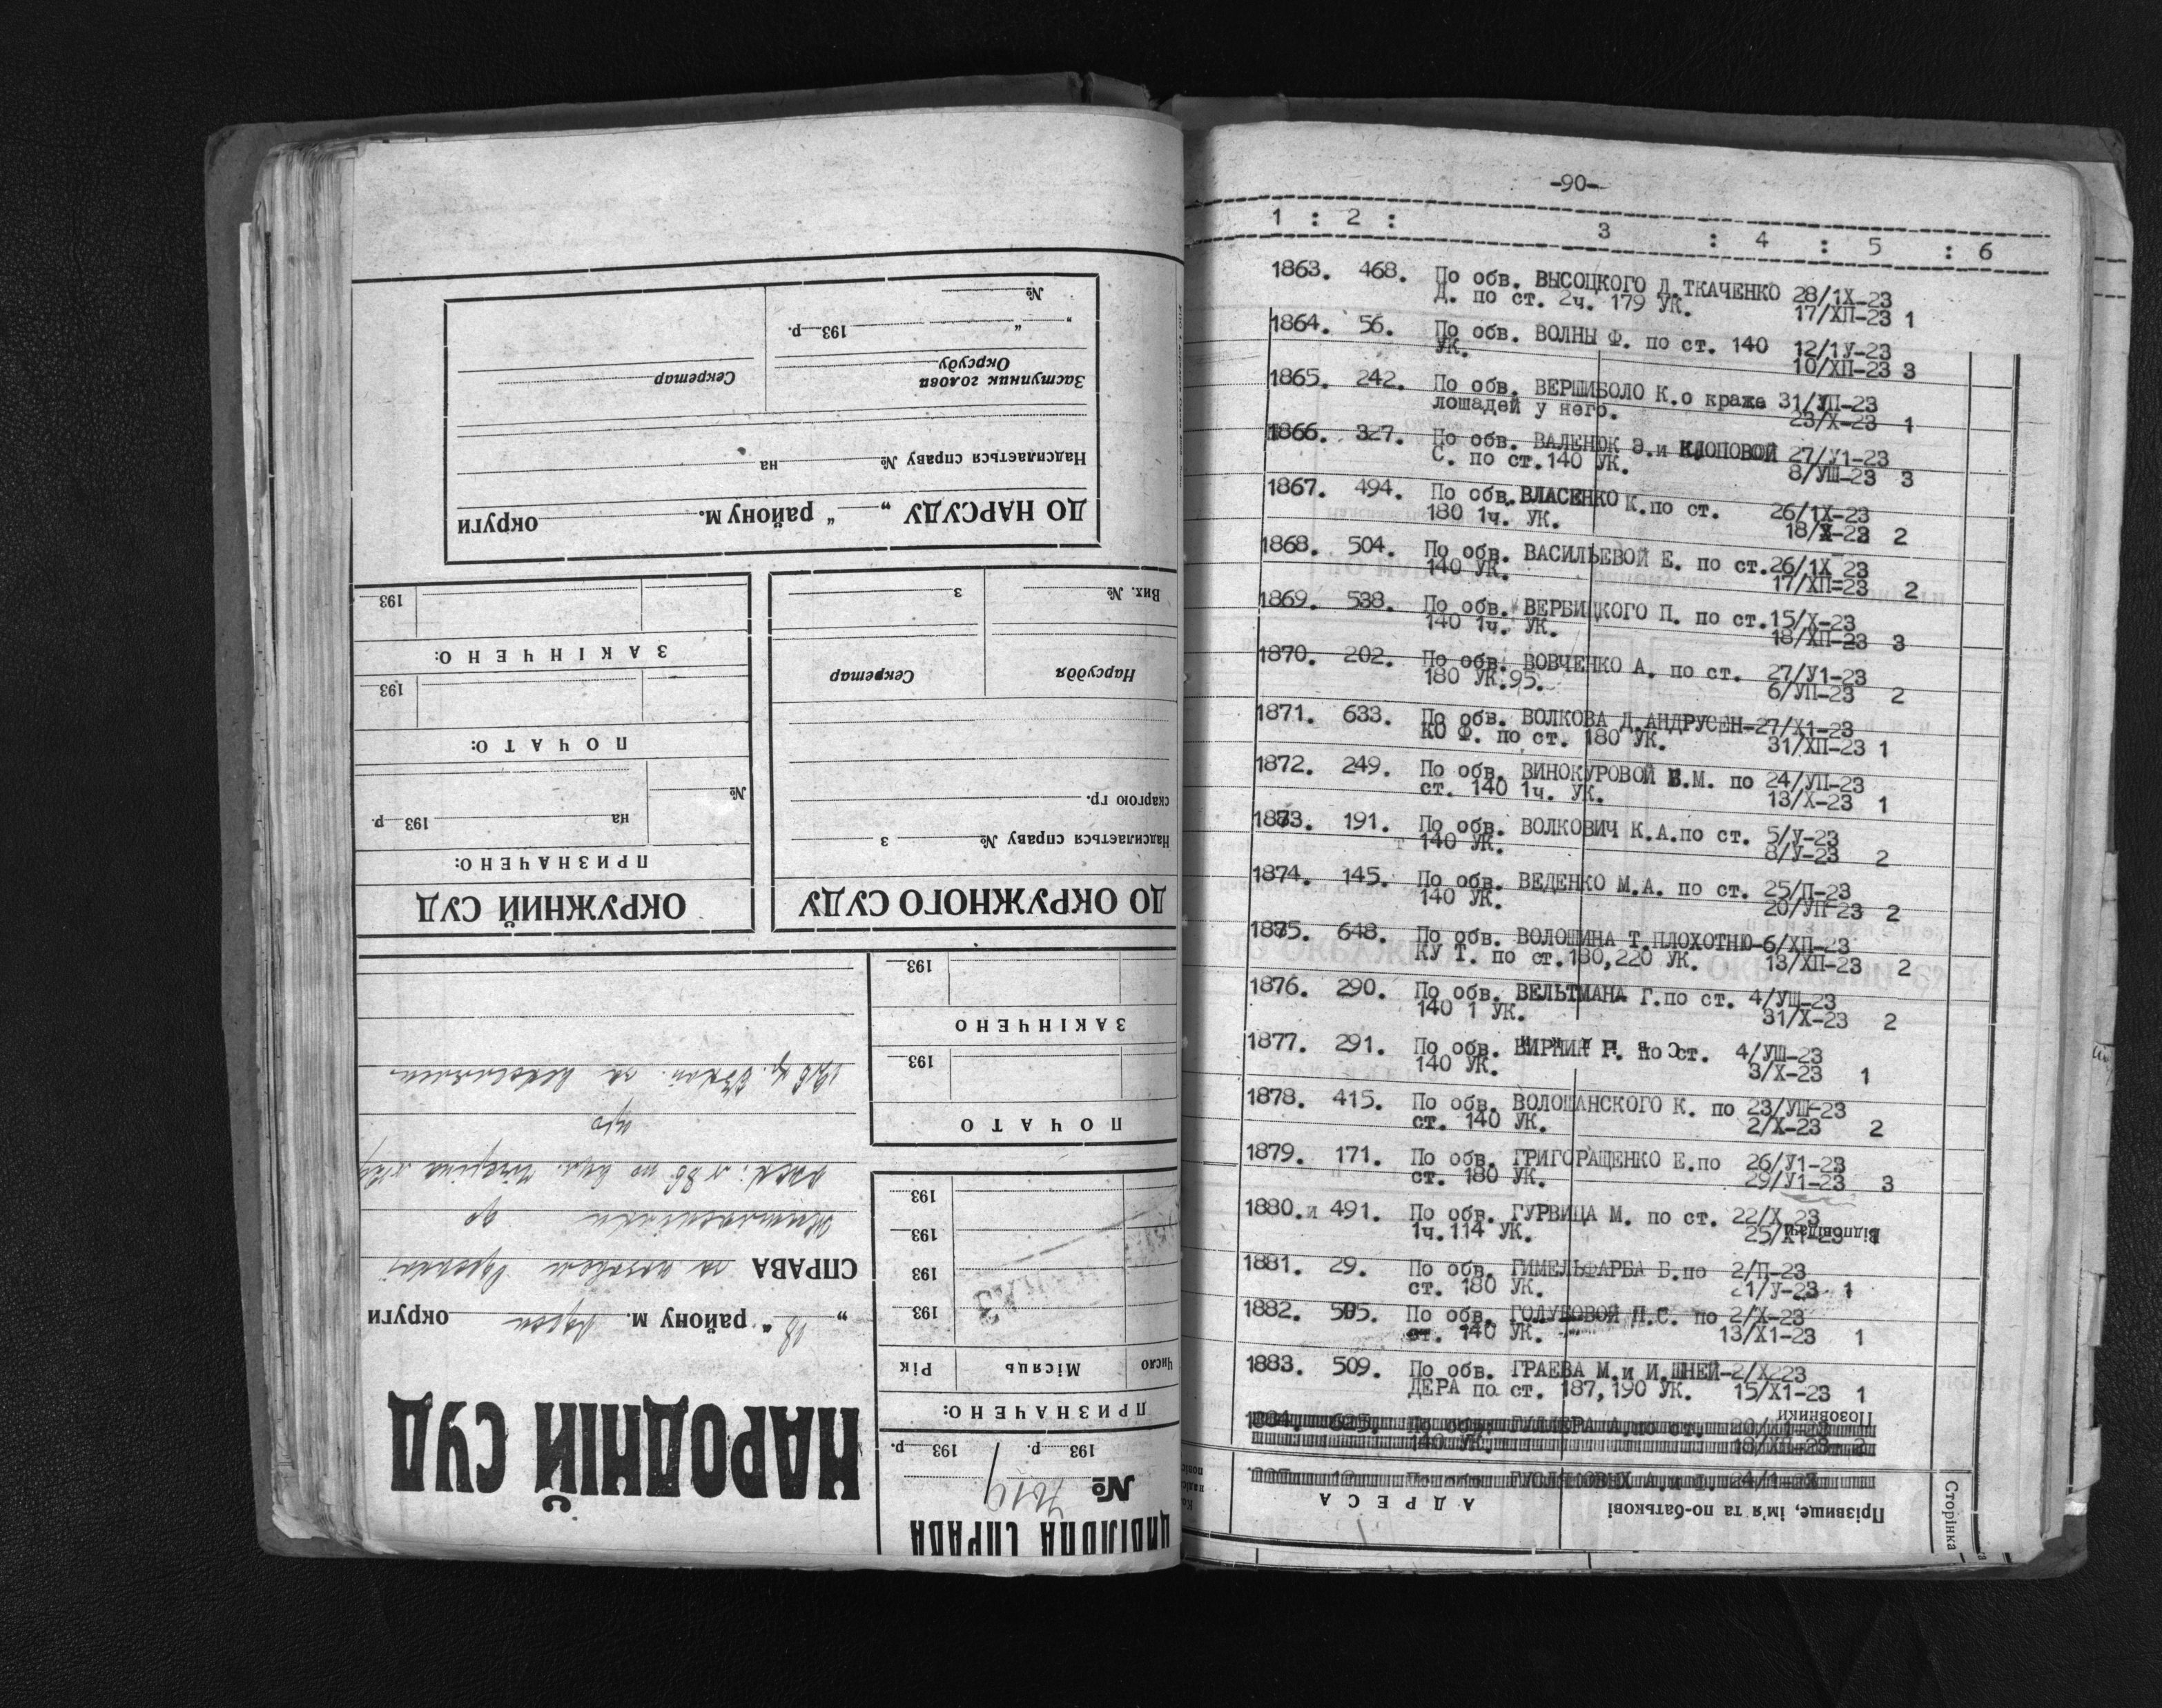 ДО НАРСУДУ „ “ району м. округи
Надсилається справу № на
Заступник голови
Окрсуду
Секретар
„ “ 193 р.
№
ДО ОКРУЖНОГО СУДУ
Надсилається справу № з
скаргою гр.
Нарсуддя
Секретар
Вих. № з
ОКРУЖНИЙ СУД
ПРИЗНАЧЕНО:
№ на 193 р.
ПОЧАТО:
193
ЗАКІНЧЕНО:
193
ЦИВІЛОВА СПРАВА
№
193 р. 193 р.
ПРИЗНАЧЕНО:
Число Місяць Рік
193
193
193
193
ПОЧАТО
193
ЗАКІНЧЕНО
193
НАРОДНІЙ СУД
„ “ району м. округи
СПРАВА
-90-
1 : 2 : 3 : 4 : 5 : 6
1863. 468. По обв. ВЫСОЦКОГО Д.ТКАЧЕНКО 28/1Х-23
Д. по ст. 2ч. 179 УК. 17/ХП-23 1
1864. 56. По обв. ВОЛНЫ Ф. по ст. 140 12/1У-23
УК. 10/ХП-23 3
1865. 242. По обв. ВЕРШИБОЛО К.о краже 31/УП-23
лошадей у него. 23/Х-23 1
1866. 327. По обв. ВАЛЕНЮК Э.и КЛОПОВОЙ 27/У1-23
С. по ст.140 УК. 8/УШ-23 3
1867. 494. По обв.ВЛАСЕНКО К.по ст. 26/1Х-23
180 1ч. УК. 18/Х-23 2
1868. 504. По обв. ВАСИЛЬЕВОЙ Е. по ст.26/1Х 23
140 УК. 17/ХП=23 2
1869. 538. По обв. ВЕРБИЦКОГО П. по ст.15/Х-23
140 1ч. УК. 18/ХП-23 3
1870. 202. По обв. ВОВЧЕНКО А. по ст. 27/У1-23
180 УК.95. 6/УП-23 2
1871. 633. По обв. ВОЛКОВА Д.АНДРУСЕН-27/Х1-23
КО Ф. по ст. 180 УК. 31/ХП-23 1
1872. 249. По обв. ВИНОКУРОВОЙ Б.М. по 24/УП-23
ст. 140 1ч. УК. 13/Х-23 1
1873. 191. По обв. ВОЛКОВИЧ К.А.по ст. 5/У-23
140 УК. 8/У-23 2
1874. 145. По обв. ВЕДЕНКО М.А. по ст. 25/П-23
140 УК. 20/УП-23 2
1875. 648. По обв. ВОЛОШИНА Т.ПЛОХОТНЮ-6/ХП-23
КУ Т. по ст.180,220 УК. 13/ХП-23 2
1876. 290. По обв. ВЕЛЬТМАНА Г.по ст. 4/УШ-23
140 1 УК. 31/Х-23 2
1877. 291. По обв. по ст. 4/УШ-23
140 УК. 3/Х-23 1
1878. 415. По обв. ВОЛОШАНСКОГО К. по 23/УШ-23
ст. 140 УК. 2/Х-23 2
1879. 171. По обв. ГРИГОРАЩЕНКО Е.по 26/У1-23
ст. 180 УК. 29/У1-23 3
1880.и 491. По обв. ГУРВИЦА М. по ст. 22/Х 23
1ч.114 УК. 25/Х1-23 1
1881. 29. По обв. ГИМЕЛЬФАРБА Б.по 2/П-23
ст. 180 УК. 21/У-23 1
1882. 505. По обв. ГОЛУБОВОЙ П.С. по 2/Х-23
ст. 140 УК. 13/Х1-23 1
1883. 509. По обв. ГРАЕВА М.и И.ШНЕЙ-2/Х 23
ДЕРА по ст. 187,190 УК. 15/Х1-23 1
Відповідачі
Позовники
Прізвище, ім'я та по-батькові
АДРЕСА
Сторінка